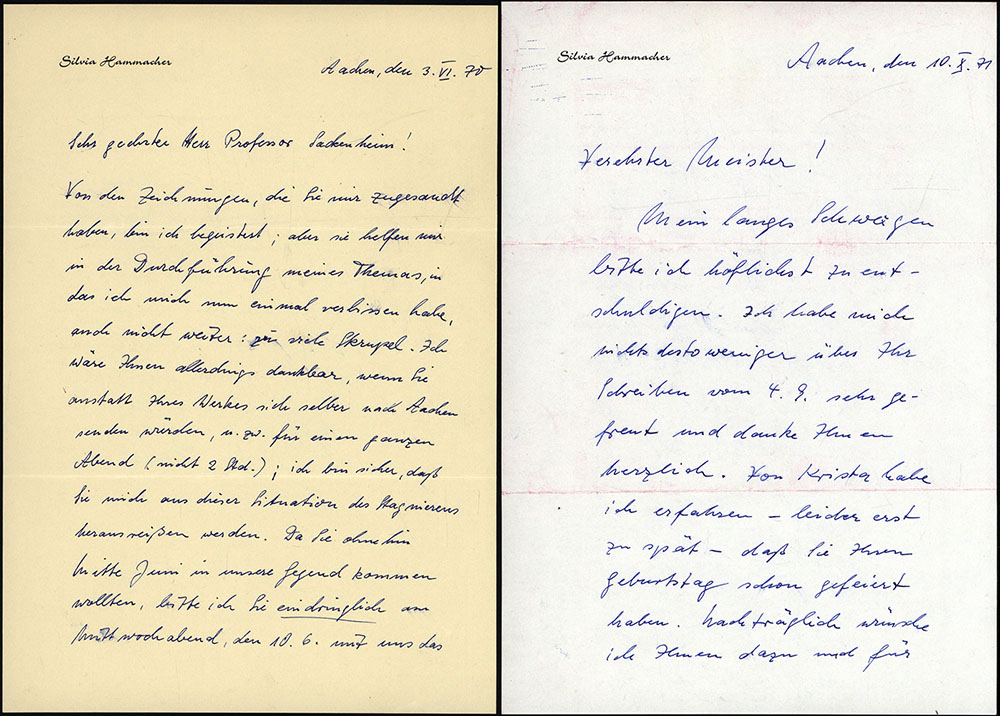 Silvia Hammacher
Aachen, den 3. VI. 70
Sehr geehrter Herr Professor Sackenheim!
Von den Zeichnungen, die Sie mir zugesandt
haben, bin ich begeistert; aber sie helfen mir
in der Durchführung meines Themas, in
das ich mich nun einmal verbissen habe,
auch nicht weiter: zu viele Skrupel. Ich
wäre Ihnen allerdings dankbar, wenn Sie
anstatt Ihres Werkes sich selber nach Aachen
senden würden, u. zw. für einen ganzen
Abend (nicht 2 Std.); ich bin sicher, daß
Sie mich aus dieser Situation des Stagnierens
herausreißen werden. Da Sie ohnehin
Mitte Juni in unsere Gegend kommen
wollten, bitte ich Sie eindringlich am
Mittwochabend, den 10. 6. mit uns das
Silvia Hammacher
Aachen, den 10. X. 71
Verehrter Meister!
Mein langes Schweigen
bitte ich höflichst zu ent-
schuldigen. Ich habe mich
nichtsdestoweniger über Ihr
Schreiben vom 4. 9. sehr ge-
freut und danke Ihnen
herzlich. Von Krista habe
ich erfahren - leider erst
zu spät - daß Sie Ihren
Geburtstag schon gefeiert
haben. Nachträglich wünsche
ich Ihnen dazu und für